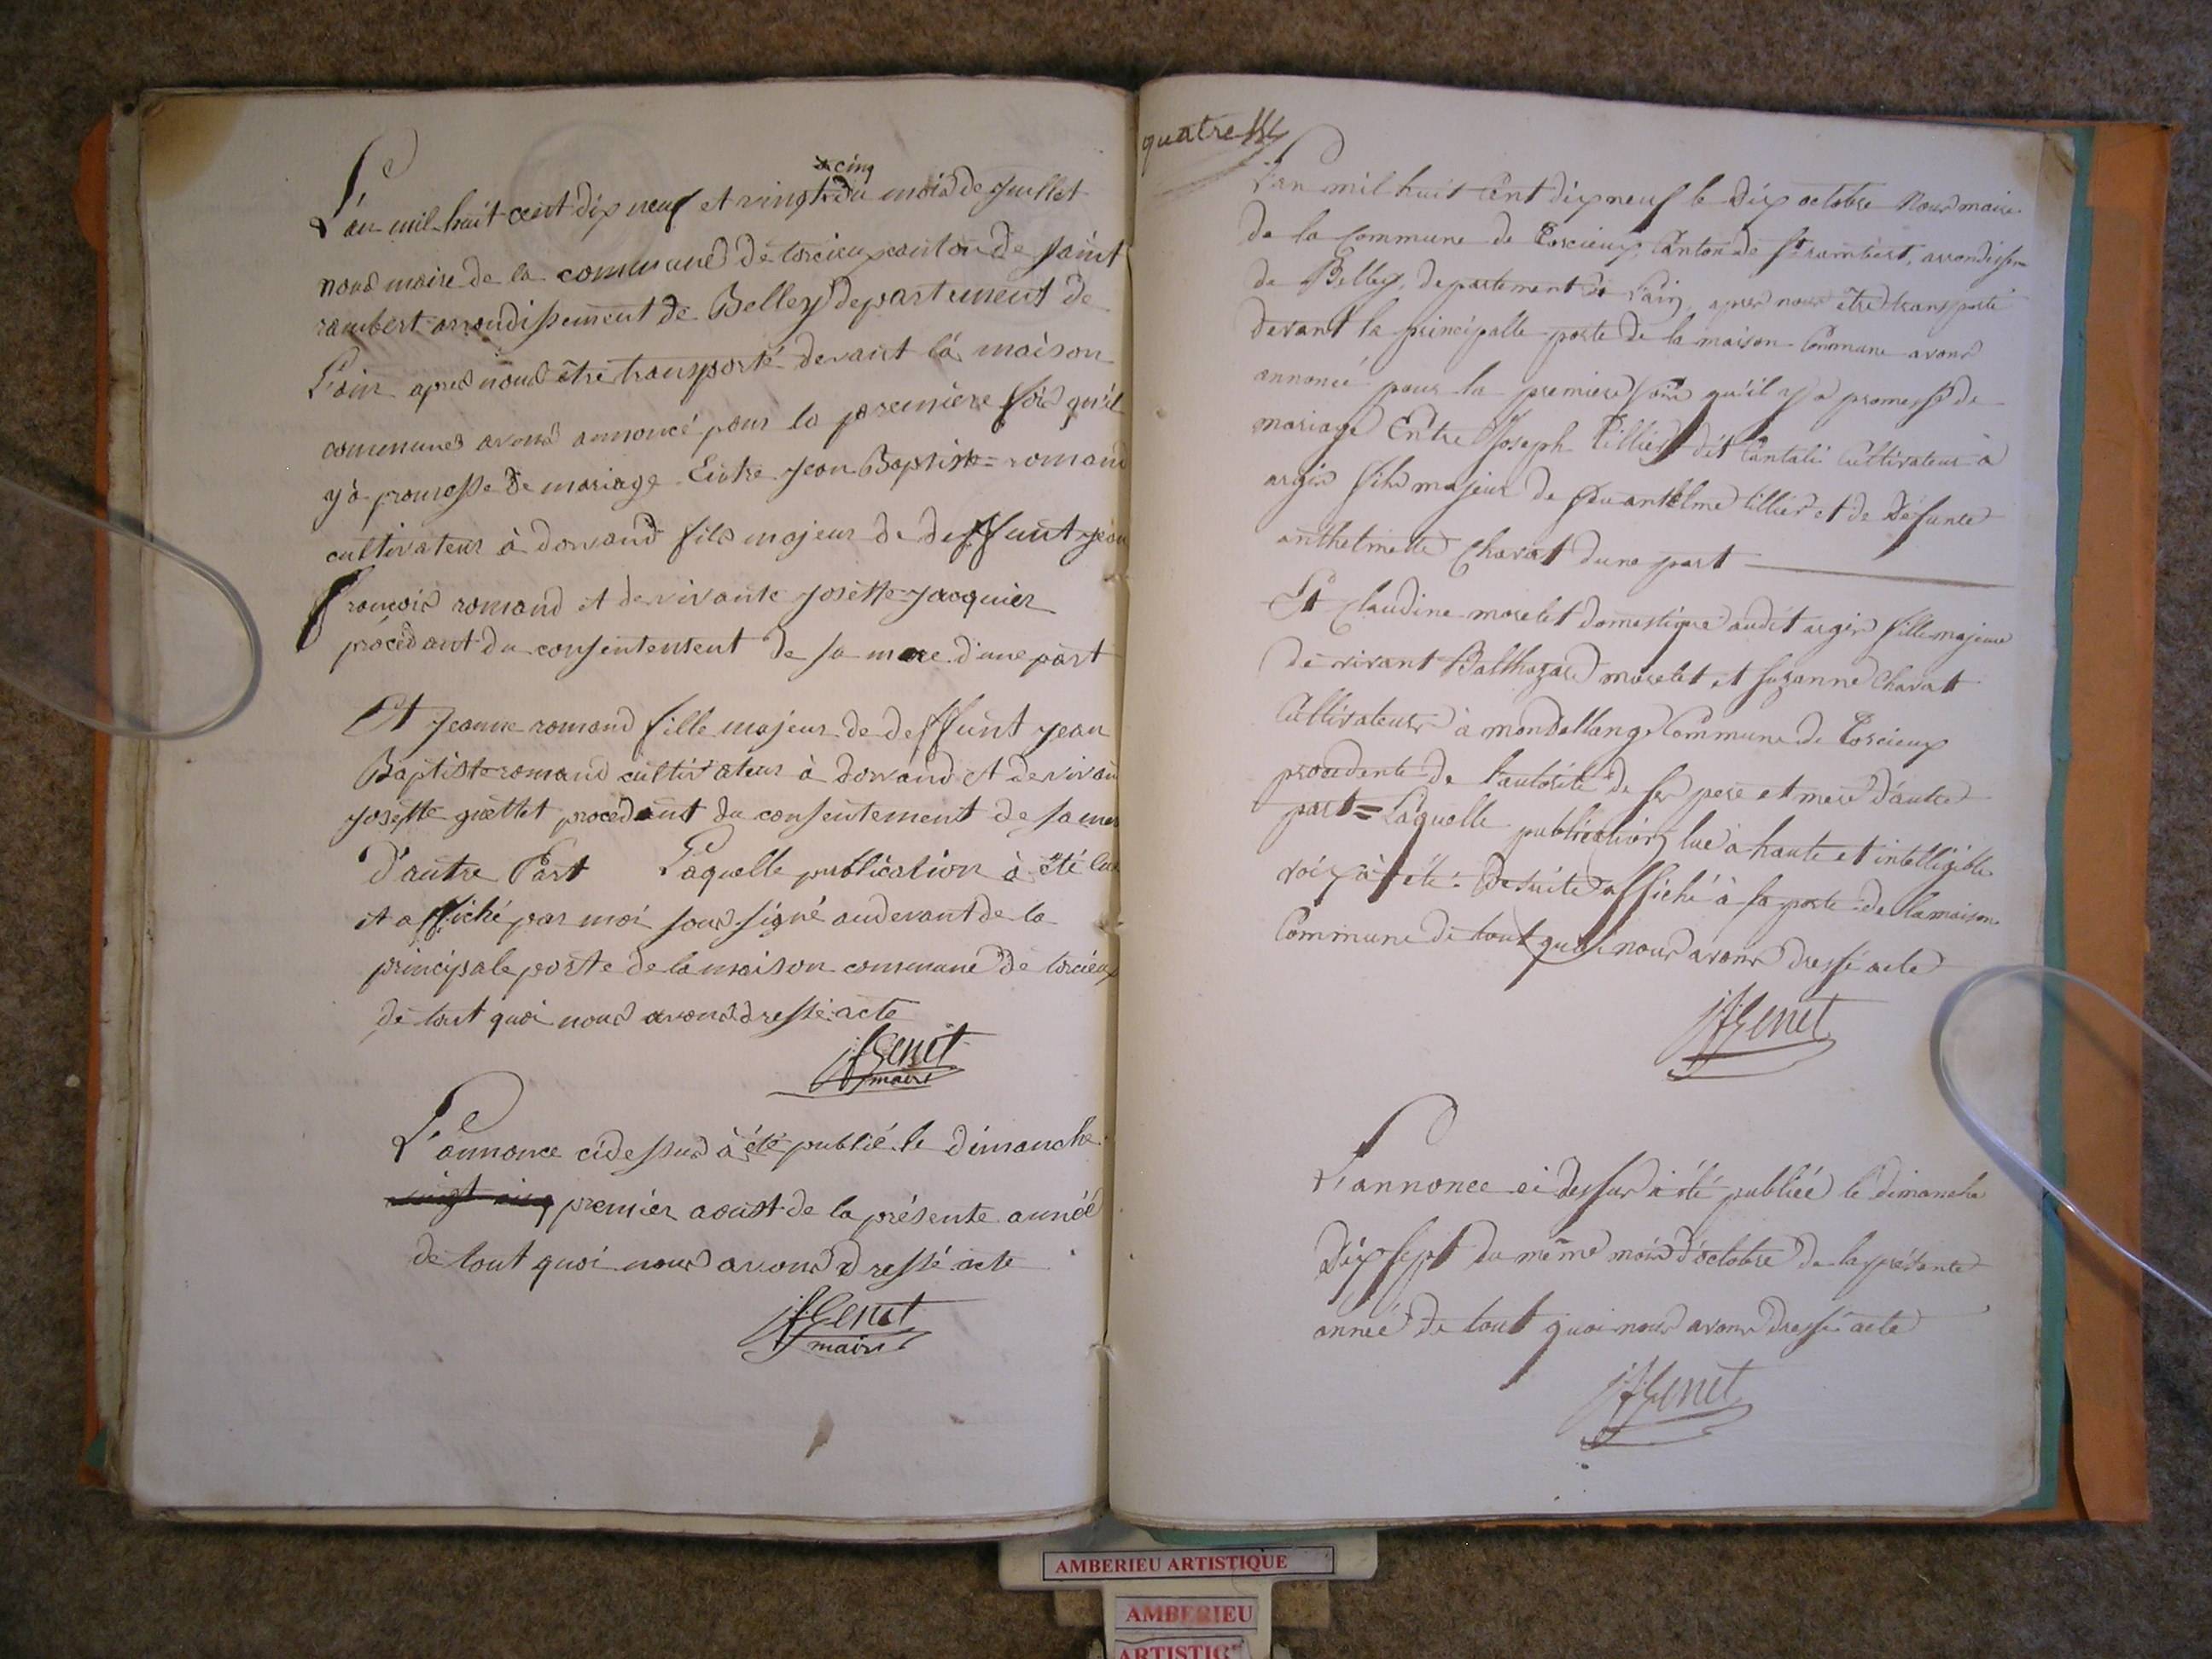 L'an mil huit cent dix neuf et vingt cinq du mois de Juillet
nous maire de la commune de torcieux canton de saint
rambert arrondissement de Belley departement de
L'ain apres nous être transporté devant la maison
commune avons annoncé pour la première fois qu'il
y à promesse de mariage Entre Jean Baptiste = romand
cultivateur à dorvand fils majeur de deffunt jean
francois romand et de vivante josette jacquier
procèdant du consentement de sa mere d'une part
Et Jeanne romand fille majeur de deffunt jean
Baptiste romand cultivateur à dorvand et de vivan
josette procédant du consentement de sa mer
d'autre Part Laquelle publication à été lue
et affiché par moi sous signé au devant de la
principale porte de la maison commune de torcieux
de tout quoi nous avons dressé acte
jfGenet
maire
L'annonce cidessus à été publié le dimanche
vingt cinq premier aoust de la présente année
de tout quoi nous avons dressé acte
jfGenet
maire
quatre
L'an mil huit Cent dix neuf le dix octobre Nous maire
de la Commune de Torcieux, Canton de St rambert, arrondissem
de Belley, departement de l'ain, apres nous être transporté
devant la principalle porte de la maison Commune avons
annoncé pour la premiere fois qu'il y a promesse de
mariage Entre Joseph Tillier dit Cultivateur à
argis fils majeur de feu antelme tillier et de Defunte
anthelmette Chavat d'une part
Et Claudine morelet domestique audit argis fille majeure
de vivant Balthazard morelet et suzanne Chavat
Cultivateurs à mondellange Commune de Torcieux
procedente de l'autorité de ses pere et mere d'autre
part = Laquelle publication lue à haute et intelligible
voix à été desuite affiché à la porte de la maison
Commune de tout quoi nous avons dressé acte
jfGenet
L'annonce ci dessus à été publiée le dimanche
Dix sept du même mois d'octobre de la présente
année de tout quoi nous avons dressé acte
jfGenet
AMBERIEU ARTISTIQUE
AMBERIEU
ARTISTIQ